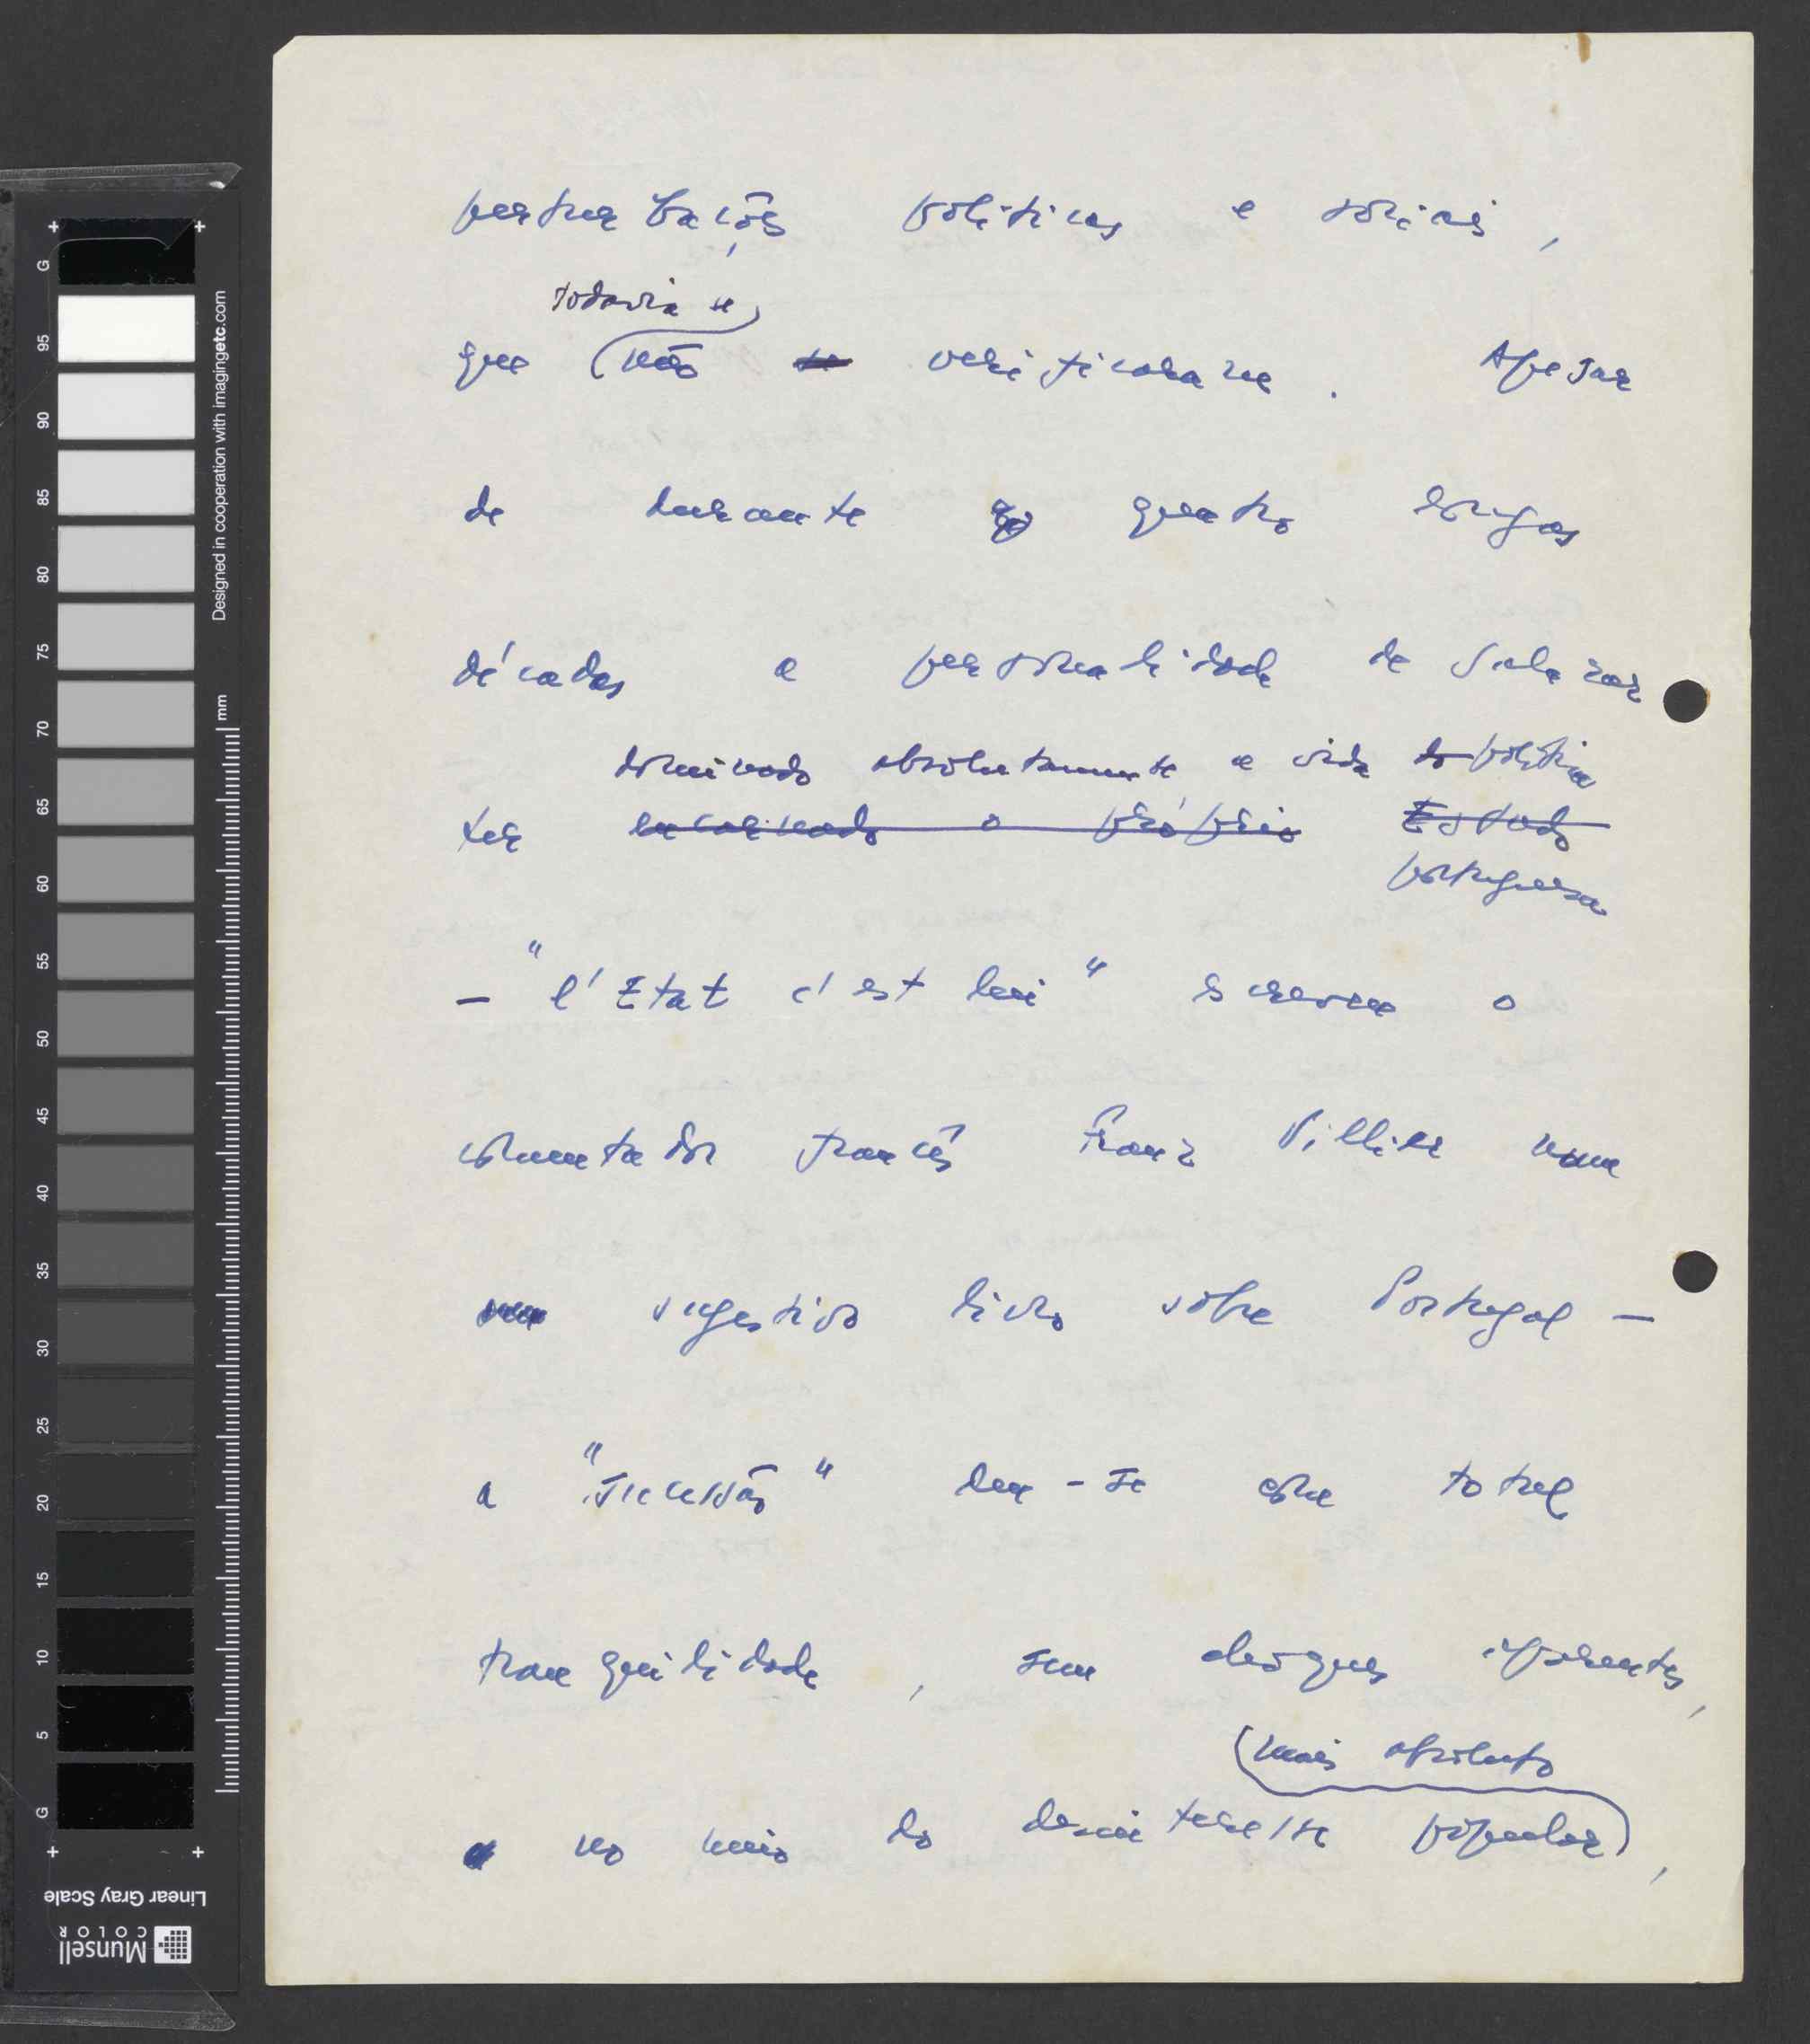 perturbações políticas e sociais,
todavia se
que não se verificaram. Apesar
de durante quatro longas
décadas a personalidade de Salazar
dominado absolutamente a vida do política
ter encarnado o próprio Estado
portuguesa
— "l'Etat c'est lui" escreveu o
comentador francês Franz Villier num
sugestivo livro sobre Portugal —
a "sucessão" deu-se com total
tranquilidade, sem choques aparentes,
mais absoluto
no meio do desinteresse popular,
G
95
90
85
80
75
70
65
60
55
50
45
40
35
30
25
20
15
10
5
G
mm
Designed in cooperation with imagingetc.com
Linear Gray Scale
Munsell
COLOR